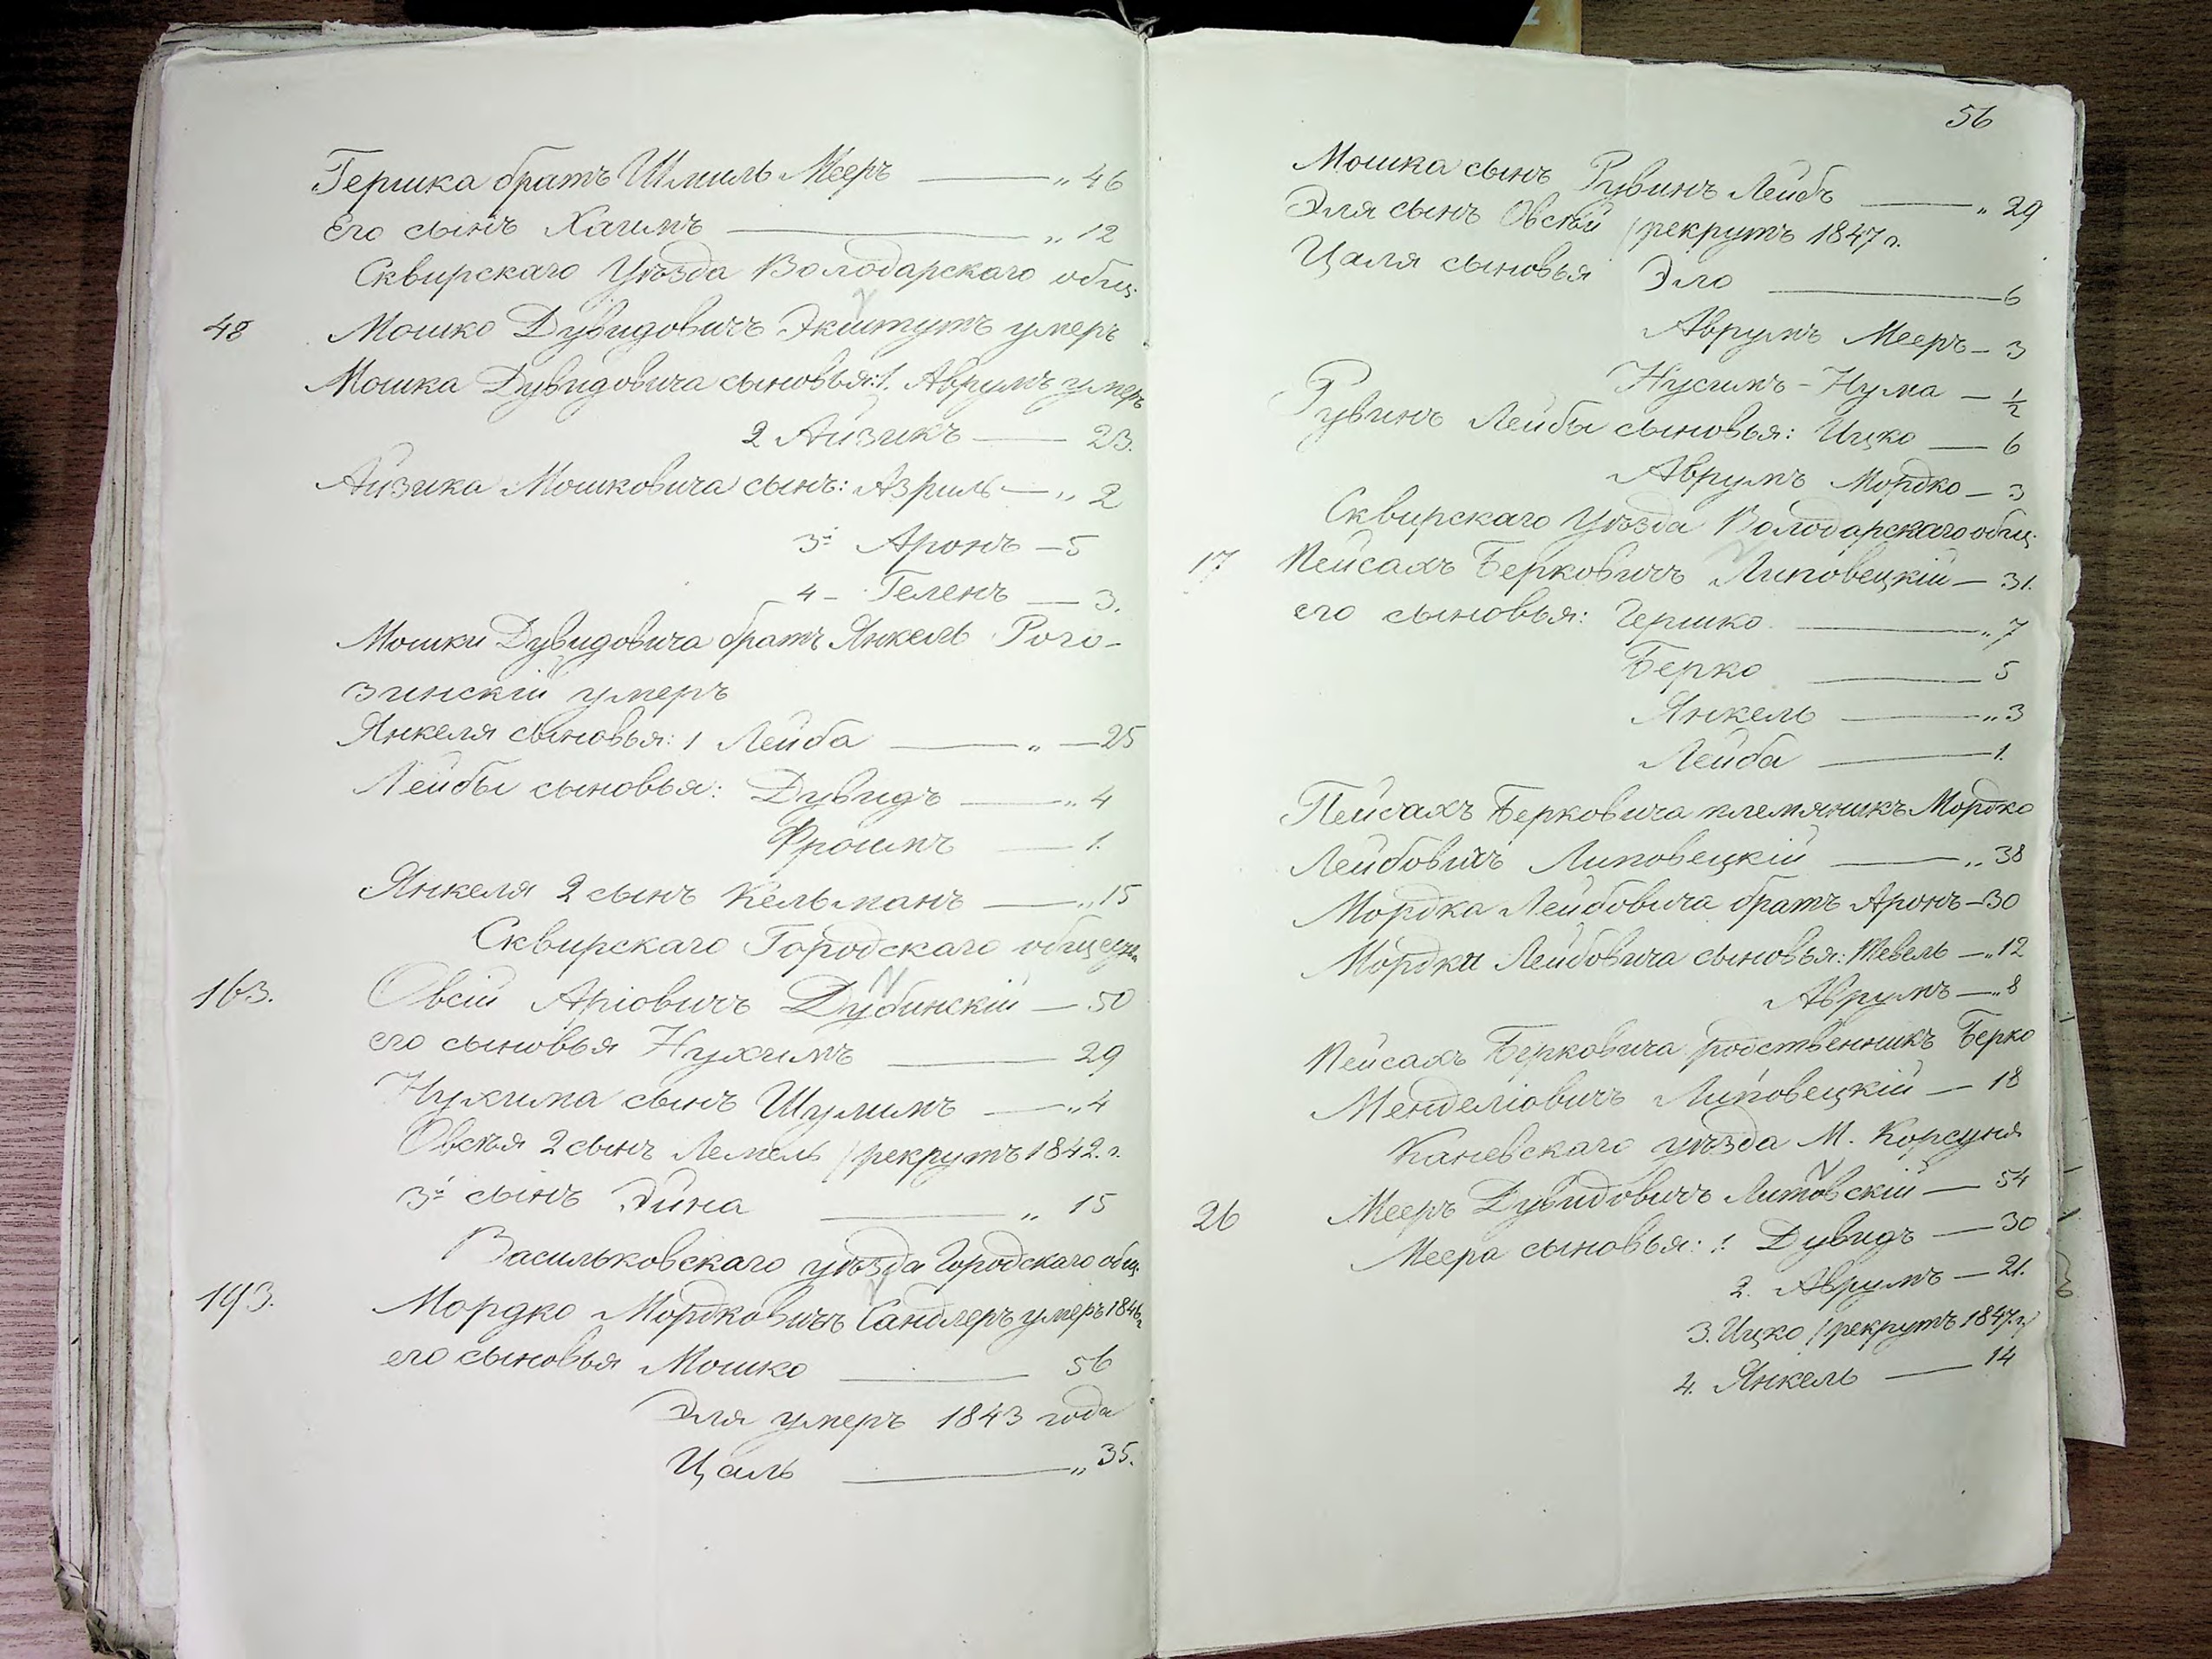 Гершка братъ Шмиль Мееръ — „ 46
его сынъ Хаимъ — „ 12
Сквирскаго Уѣзда Володарскаго общ.
48 Мошко Дувидовичъ умеръ
Мошка Дувидовича сыновья: 1. Аврумъ умеръ
2 Айзикъ — 23.
Айзика Мошковича сынъ: Азриль — „ 2
3й Аронъ — 5
4 – Геленъ — 3.
Мошки Дувидовича братъ Янкель Рого-
зинскій умеръ
Янкеля сыновья: 1 Лейба — „ — 25
Лейбы сыновья: Дувидъ — „ 4
Фроимъ — 1.
Янкеля 2 сынъ Кельманъ — „ 15
Сквирскаго Городскаго
163. Овсій Аріовичъ Дубинскій — 50
его сыновья Нухимъ — 29
Нухима сынъ Шулимъ — „ 4
Овсѣя 2 сынъ Лемель /рекрутъ 1842. г.
3й сынъ Эйна — „ 15
Васильковскаго уѣзда Городскаго общ.
193. Мордко Мордковичъ Сандлеръ умеръ 1846 г.
его сыновья Мошко — 56
Эля умеръ 1843 года
Цаль — „ 35.
56
Мошка сынъ Рувинъ Лейбъ — „ 29
Эля сынъ Овсѣй /рекрутъ 1847 г.
Цаля сыновья Эло — 6
Аврумъ Мееръ — 3
Нусимъ - Нума — ½
Рувинъ Лейбы сыновья: Ицко — 6
Аврумъ Мордко — 3
Сквирскаго Уѣзда Володарскаго общ.
17 Пейсахъ Берковичъ Липовецкій — 31.
его сыновья: Гершко — „ 7
Берко — 5
Янкель — „ 3
Лейба — 1.
Пейсахъ Берковича племяникъ Мордко
Лейбовичъ Липовецкій — „ 38
Мордка Лейбовича братъ Аронъ — 30
Мордки Лейбовича сыновья: Тевель — „ 12
Аврумъ — „ 8
Пейсахъ Берковича родственникъ Берко
Менделіовичъ Липовецкій — 18
Каневскаго уѣзда М. Корсуня
26 Мееръ Дувидовичъ Литовскій — 54
Меера сыновья: 1. Дувидъ — 30
2. Аврумъ — 21.
3. Ицко /рекрутъ 1847. г./
4. Янкель — 14